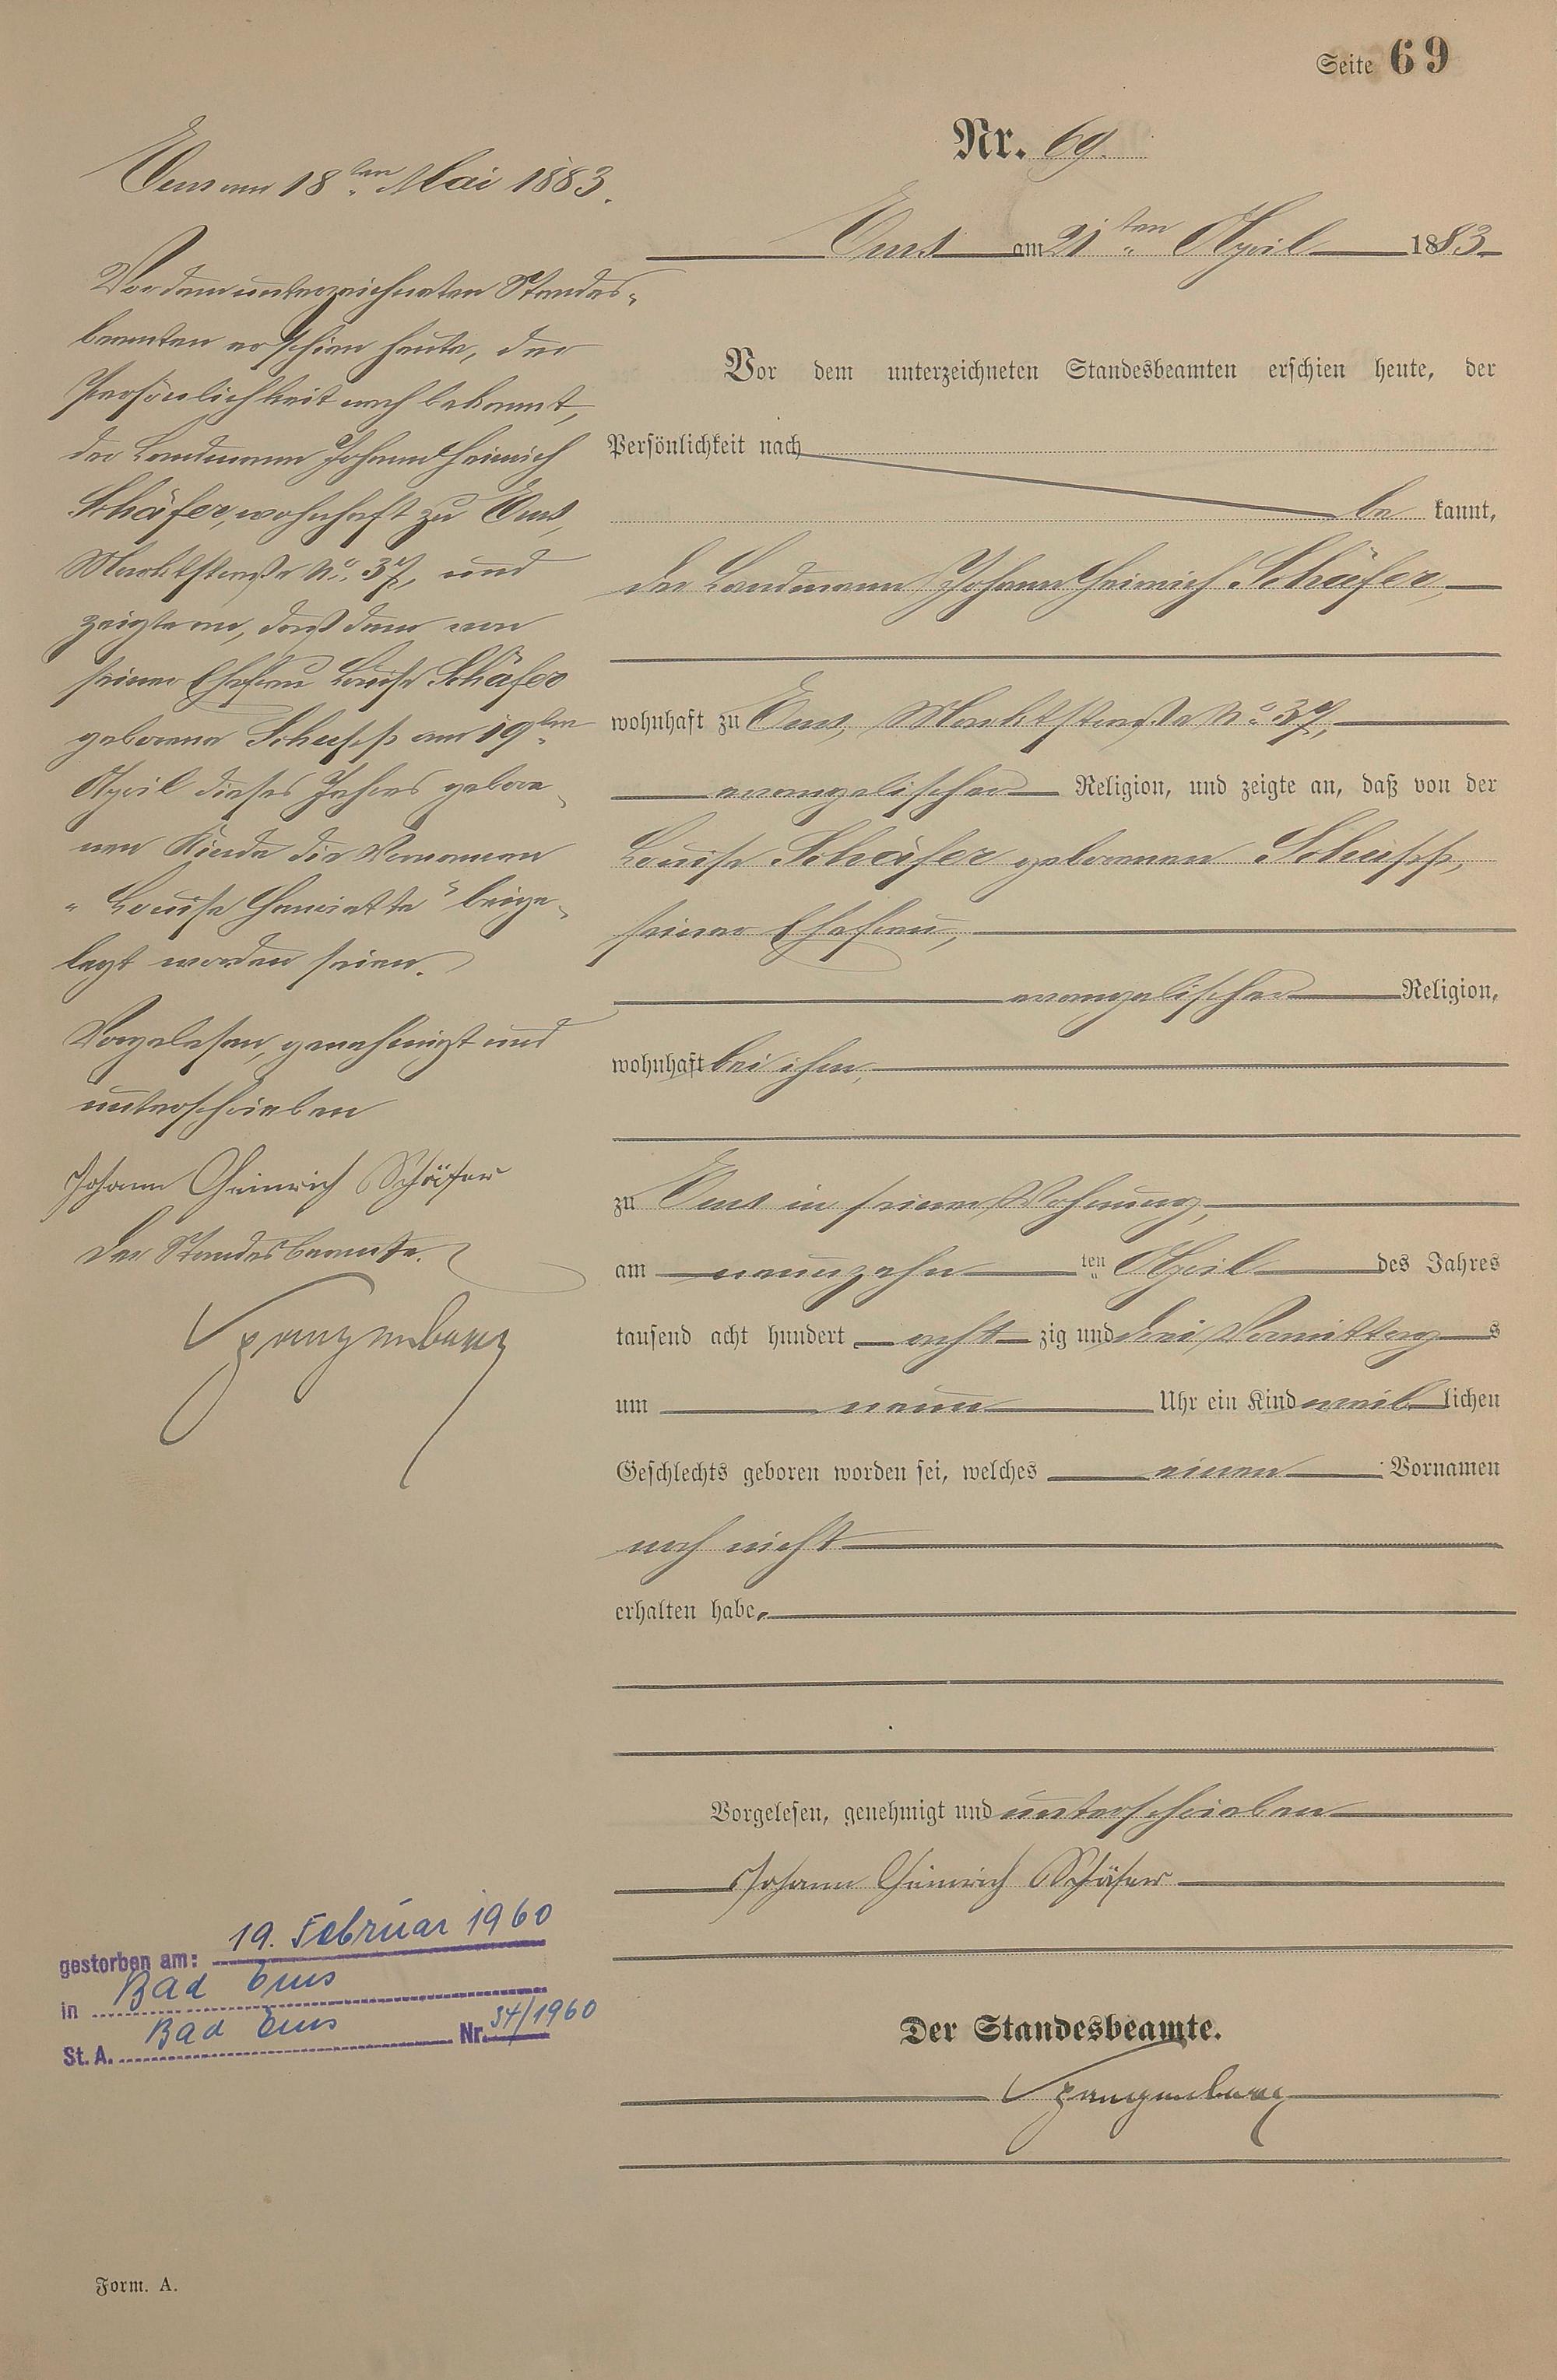 Seite 69
Nr. 69.
Ems am 21ten April 1883
Vor dem unterzeichneten Standesbeamten erschien heute, der
Persönlichkeit nach
be kannt,
der Landmann Johann Heinrich Schäfer,
wohnhaft zu Ems, Marktstraße No. 37,
evangelischer Religion, und zeigte an, daß von der
Louise Schäfer geborenen Schupp,
seiner Ehefrau,
evangelischer Religion,
wohnhaft bei ihm,
zu Ems in seiner Wohnung,
am neunzehn ten April des Jahres
tausend acht hundert acht zig und drei Vormittag s
um neun Uhr ein Kind weib lichen
Geschlechts geboren worden sei, welches einen Vornamen
noch nicht
erhalten habe.
Vorgelesen, genehmigt und unterschrieben
Johann Heinrich Schäfer
Der Standesbeamte.
Spangenberg
Ems am 18ten Mai 1883.
Vor dem unterzeichneten Standes-
beamten erschien heute, der
Persönlichkeit nach bekannt,
der Landmann Johann Heinrich
Schäfer, wohnhaft zu Ems,
Marktstraße No. 37, und
zeigte an, daß dem von
seiner Ehefrau Louise Schäfer
geborene Schupp am 19ten
April dieses Jahres gebore-
nen Kinde die Vornamen
"Louise Henriette" beige-
legt worden seien.
Vorgelesen, genehmigt und
unterschrieben
Johann Heinrich Schäfer
Der Standesbeamte.
Spangenberg
gestorben am: 19. Februar 1960
in Bad Ems
St. A. Bad Ems Nr. 34/1960
Form. A.